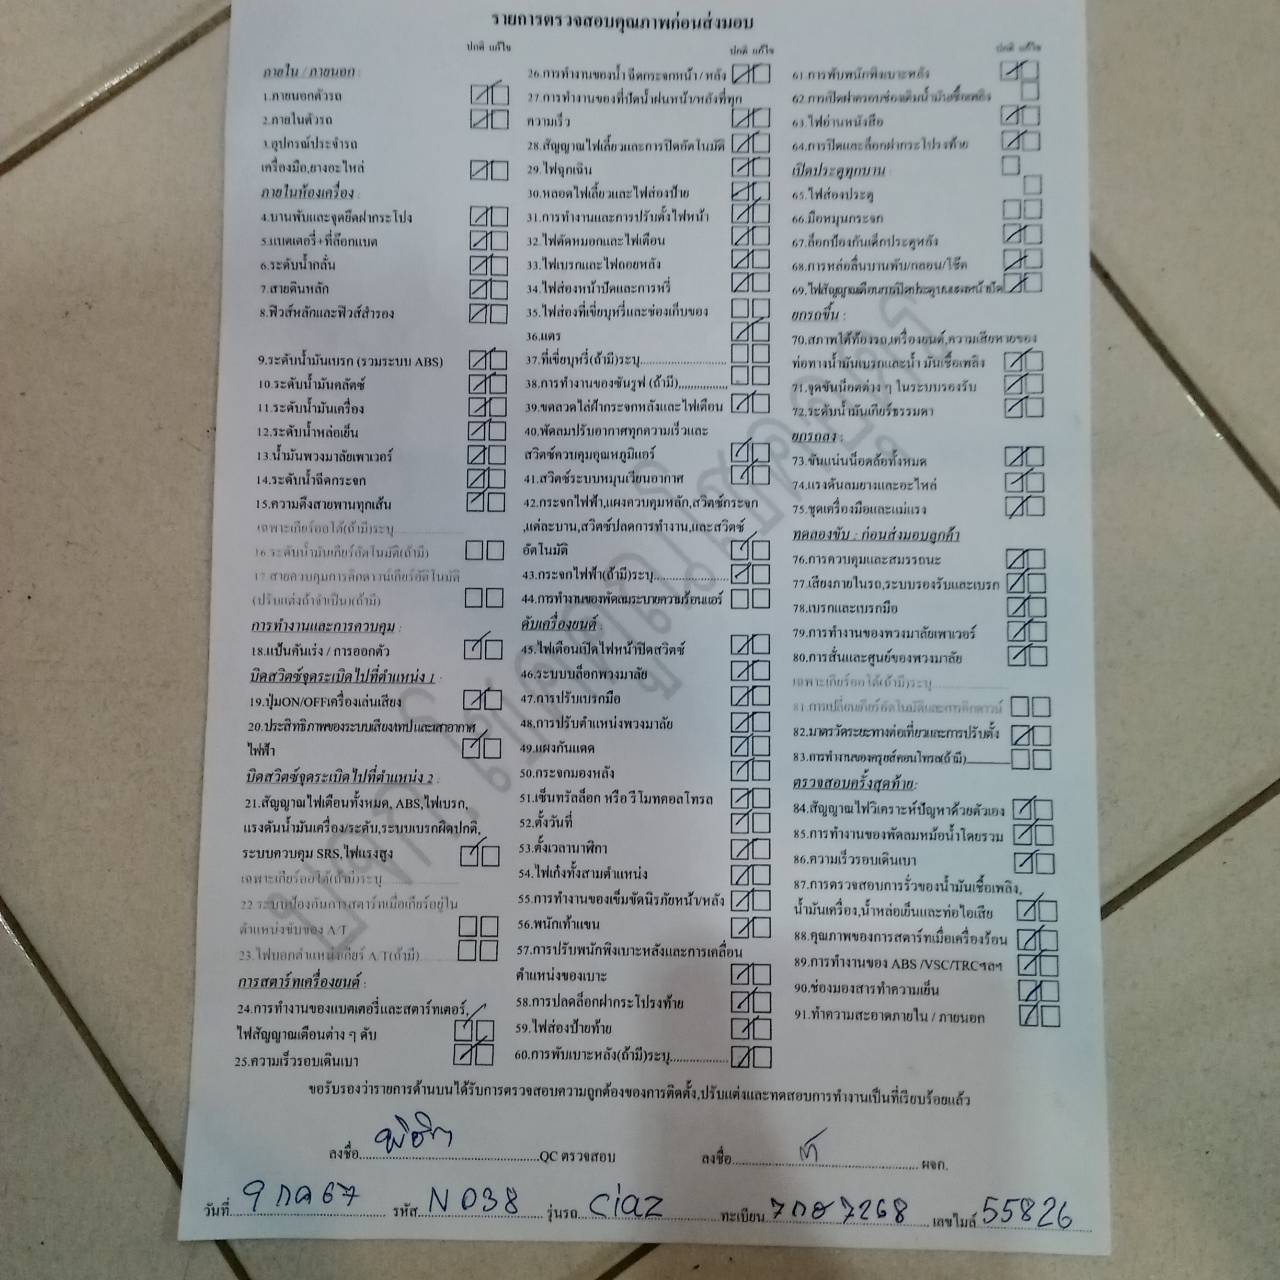 รายการตรวจสอบคุณภาพก่อนส่งมอบ
ปกติ แก้ไข
ภายใน / ภายนอก :
1.ภายนอกตัวรถ
2.ภายในตัวรถ
3.อุปกรณ์ประจำรถ
เครื่องมือ,ยางอะไหล่
ภายในห้องเครื่อง :
4.บานพับและจุดยึดฝากระโปง
5.แบตเตอรี่+ที่ล๊อกแบต
6.ระดับน้ำกลั่น
7.สายดินหลัก
8.ฟิวส์หลักและฟิวส์สำรอง
9.ระดับน้ำมันเบรก (รวมระบบ ABS)
10.ระดับน้ำมันคลัตซ์
11.ระดับน้ำมันเครื่อง
12.ระดับน้ำหล่อเย็น
13.น้ำมันพวงมาลัยเพาเวอร์
14.ระดับน้ำฉีดกระจก
15.ความตึงสายพานทุกเส้น
เฉพาะเกียร์ออโต้(ถ้ามี)ระบุ
16.ระดับน้ำมันเกียร์อัตโนมัติ(ถ้ามี)
17.สายควบคุมการคิกดาวน์เกียร์อัติโนมัติ
(ปรับแต่งถ้าจำเป็น)(ถ้ามี)
การทำงานและการควบคุม :
18.แป้นคันเร่ง / การออกตัว
บิดสวิตซ์จุดระเบิดไปที่ตำแหน่ง 1 :
19.ปุ่มON/OFFเครื่องเล่นเสียง
20.ประสิทธิภาพของระบบเสียงเทปและเสาอากาศ
ไฟฟ้า
บิดสวิตซ์จุดระเบิดไปที่ตำแหน่ง 2 :
21.สัญญาณไฟเตือนทั้งหมด, ABS,ไฟเบรก,
แรงดันน้ำมันเครื่อง/ระดับ,ระบบเบรกผิดปกติ,
ระบบควบคุม SRS,ไฟแรงสูง
เฉพาะเกียร์ออโต้(ถ้ามี)ระบุ
22.ระบบป้องกันการสตาร์ทเมื่อเกียร์อยู่ใน
ตำแหน่งขับของ A/T
23.ไฟบอกตำแหน่งเกียร์ A/T(ถ้ามี)
การสตาร์ทเครื่องยนต์ :
24.การทำงานของแบตเตอรี่และสตาร์ทเตอร์,
ไฟสัญญาณเตือนต่าง ๆ ดับ
25.ความเร็วรอบเดินเบา
ปกติ แก้ไข
26.การทำงานของน้ำ ฉีดกระจกหน้า / หลัง
27.การทำงานของที่ปัดน้ำฝนหน้า/หลังที่ทุก
ความเร็ว
28.สัญญาณไฟเลี้ยวและการปิดอัตโนมัติ
29.ไฟฉุกเฉิน
30.หลอดไฟเลี้ยวและไฟส่องป้าย
31.การทำงานและการปรับตั้งไฟหน้า
32.ไฟตัดหมอกและไฟเตือน
33.ไฟเบรกและไฟถอยหลัง
34.ไฟส่องหน้าปัดและการหรี่
35.ไฟส่องที่เขี่ยบุหรี่และช่องเก็บของ
36.แตร
37.ที่เขี่ยบุหรี่(ถ้ามี)ระบุ
38.การทำงานของซันรูฟ (ถ้ามี)
39.ขดลวดไล่ฝ้ากระจกหลังและไฟเตือน
40.พัดลมปรับอากาศทุกความเร็วและ
สวิตซ์ควบคุมอุณหภูมิแอร์
41.สวิตซ์ระบบหมุนเวียนอากาศ
42.กระจกไฟฟ้า,แผงควบคุมหลัก,สวิตซ์กระจก
,แต่ละบาน,สวิตซ์ปลดการทำงาน,และสวิตซ์
อัตโนมัติ
43.กระจกไฟฟ้า(ถ้ามี)ระบุ
44.การทำงานของพัดลมระบายความร้อนแอร์
ดับเครื่องยนต์ :
45.ไฟเตือนเปิดไฟหน้าปิดสวิตซ์
46.ระบบบล็อกพวงมาลัย
47.การปรับเบรกมือ
48.การปรับตำแหน่งพวงมาลัย
49.แผงกันแดด
50.กระจกมองหลัง
51.เซ็นทรัลล็อก หรือ รีโมทคอลโทรล
52.ตั้งวันที่
53.ตั้งเวลานาฬิกา
54.ไฟเก๋งทั้งสามตำแหน่ง
55.การทำงานของเข็มขัดนิรภัยหน้า/หลัง
56.พนักเท้าแขน
57.การปรับพนักพิงเบาะหลังและการเคลื่อน
ตำแหน่งของเบาะ
58.การปลดล็อกฝากระโปรงท้าย
59.ไฟส่องป้ายท้าย
60.การพับเบาะหลัง(ถ้ามี)ระบุ
ปกติ แก้ไข
61.การพับพนักพิงเบาะหลัง
62.การเปิดฝาครอบช่องเติมน้ำมันเชื้อเพลิง
63.ไฟอ่านหนังสือ
64.การปิดและล็อกฝากระโปรงท้าย
เปิดประตูทุกบาน :
65.ไฟส่องประตู
66.มือหมุนกระจก
67.ล็อกป้องกันเด็กประตูหลัง
68.การหล่อลื่นบานพับ/กลอน/โช๊ค
ยกรถขึ้น :
70.สภาพใต้ท้องรถ,เครื่องยนต์,ความเสียหายของ
ท่อทางน้ำมันเบรกและน้ำ มันเชื้อเพลิง
71.จุดขันน็อตต่าง ๆ ในระบบรองรับ
72.ระดับน้ำมันเกียร์ธรรมดา
ยกรถลง :
73.ขันแน่นน็อตล้อทั้งหมด
74.แรงดันลมยางและอะไหล่
75.ชุดเครื่องมือและแม่แรง
ทดลองขับ : ก่อนส่งมอบลูกค้า
76.การควบคุมและสมรรถนะ
77.เสียงภายในรถ,ระบบรองรับและเบรก
78.เบรกและเบรกมือ
79.การทำงานของพวงมาลัยเพาเวอร์
80.การสั่นและศูนย์ของพวงมาลัย
เฉพาะเกียร์ออโต้(ถ้ามี)ระบุ
81.การเปลี่ยนเกียร์อัตโนมัติและการคิกดาวน์
82.มาตรวัดระยะทางต่อเที่ยวและการปรับตั้ง
83.การทำงานของครูยส์คอนโทรล(ถ้ามี)
ตรวจสอบครั้งสุดท้าย:
84.สัญญาณไฟวิเคราะห์ปัญหาด้วยตัวเอง
85.การทำงานของพัดลมหม้อน้ำโดยรวม
86.ความเร็วรอบเดินเบา
87.การตรวจสอบการรั่วของน้ำมันเชื้อเพลิง,
น้ำมันเครื่อง,น้ำหล่อเย็นและท่อไอเสีย
88.คุณภาพของการสตาร์ทเมื่อเครื่องร้อน
89.การทำงานของ ABS /VSC/TRCฯลฯ
90.ช่องมองสารทำความเย็น
91.ทำความสะอาดภายใน / ภายนอก
ขอรับรองว่ารายการด้านบนได้รับการตรวจสอบความถูกต้องของการติดตั้ง,ปรับแต่งและทดสอบการทำงานเป็นที่เรียบร้อยแล้ว
ลงชื่อ QC ตรวจสอบ ลงชื่อ ผจก.
วันที่ 9 กค 67 รหัส N038 รุ่นรถ ciaz ทะเบียน 7กฮ 7268 เลขไมล์ 55826